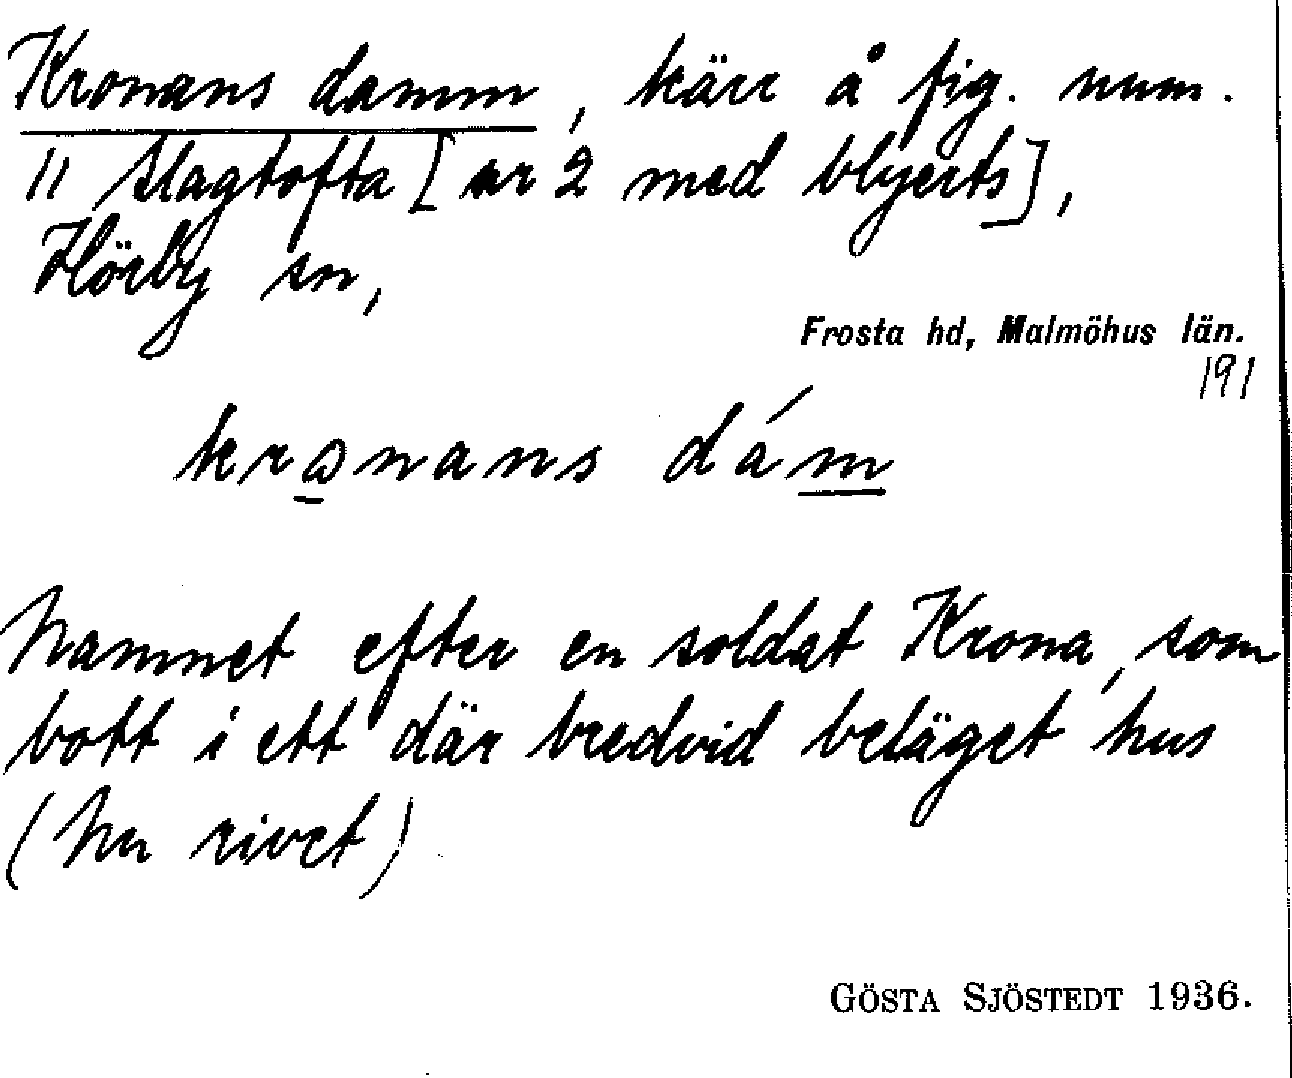 Kronans damm, kärr å fig. num.
11 Slagtofta [nr 2 med blyerts],
Hörby sn,
Frosta hd, Malmöhus län.
191
kronans dám
Namnet efter en soldat Krona, som
bott i ett där bredvid beläget hus
(nu rivet)
GÖSTA SJÖSTEDT 1936.